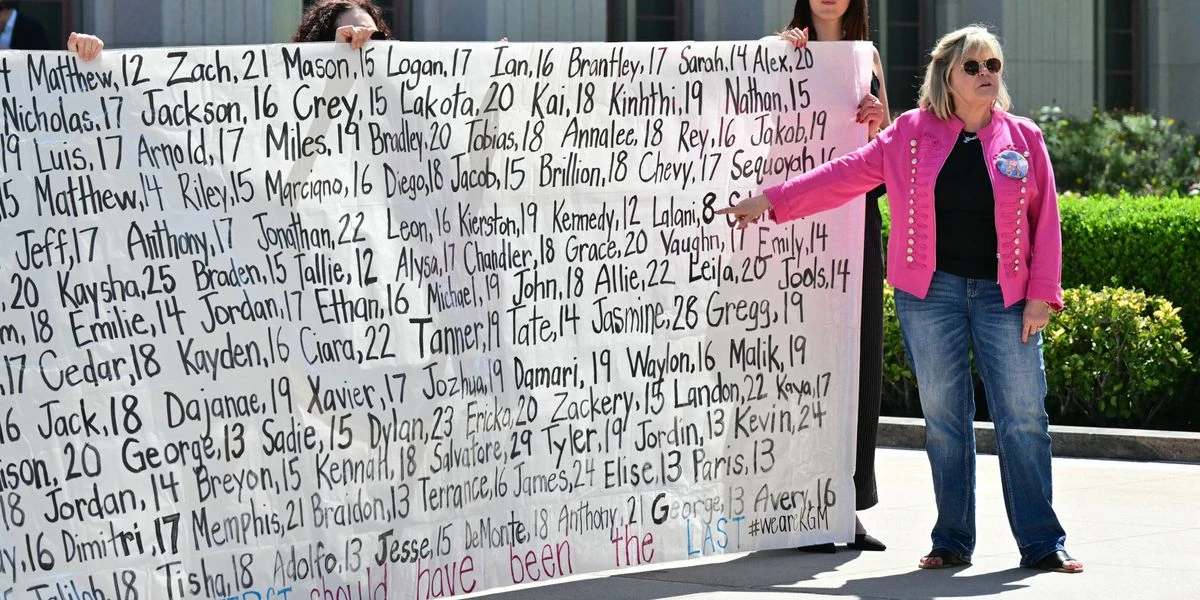 Matthew,12 Zach,21 Mason,15 Logan,17 Ian,16 Brantley,17 Sarah,14 Alex,20
Nicholas,17 Jackson,16 Crey,15 Lakota,20 Kai,18 Kinhthi,19 Nathan,15
19 Luis,17 Arnold,17 Miles,19 Bradley,20 Tobias,18 Annalee,18 Rey,16 Jakob,19
Matthew,14 Riley,15 Marciano,16 Diego,18 Jacob,15 Brillion,18 Chevy,17 Sequoyah
Jeff,17 Anthony,17 Jonathan,22 Leon,16 Kierston,19 Kennedy,12 Lalani,8
20 Kaysha,25 Braden,15 Tallie,12 Alysa,17 Chandler,18 Grace,20 Vaughn,17 Emily,14
18 Emilie,14 Jordan,17 Ethan,16 Michael,19 John,18 Allie,22 Leila,20 Jools,14
17 Cedar,18 Kayden,16 Ciara,22 Tanner,19 Tate,14 Jasmine,28 Gregg,19
16 Jack,18 Dajanae,19 Xavier,17 Jozhua,19 Damari,19 Waylon,16 Malik,19
20 George,13 Sadie,15 Dylan,23 Ericka,20 Zackery,15 Landon,22 Kava,17
18 Jordan,14 Breyon,15 Kennah,18 Salvatore,29 Tyler,19 Jordin,13 Kevin,24
16 Dimitri,17 Memphis,21 Braldon,13 Terrance,16 James,24 Elise,13 Paris,13
18 Tisha,18 Adolfo,13 Jesse,15 DeMonte,18 Anthony,21 George,13 Avery,16
should have been the LAST #weareKGM